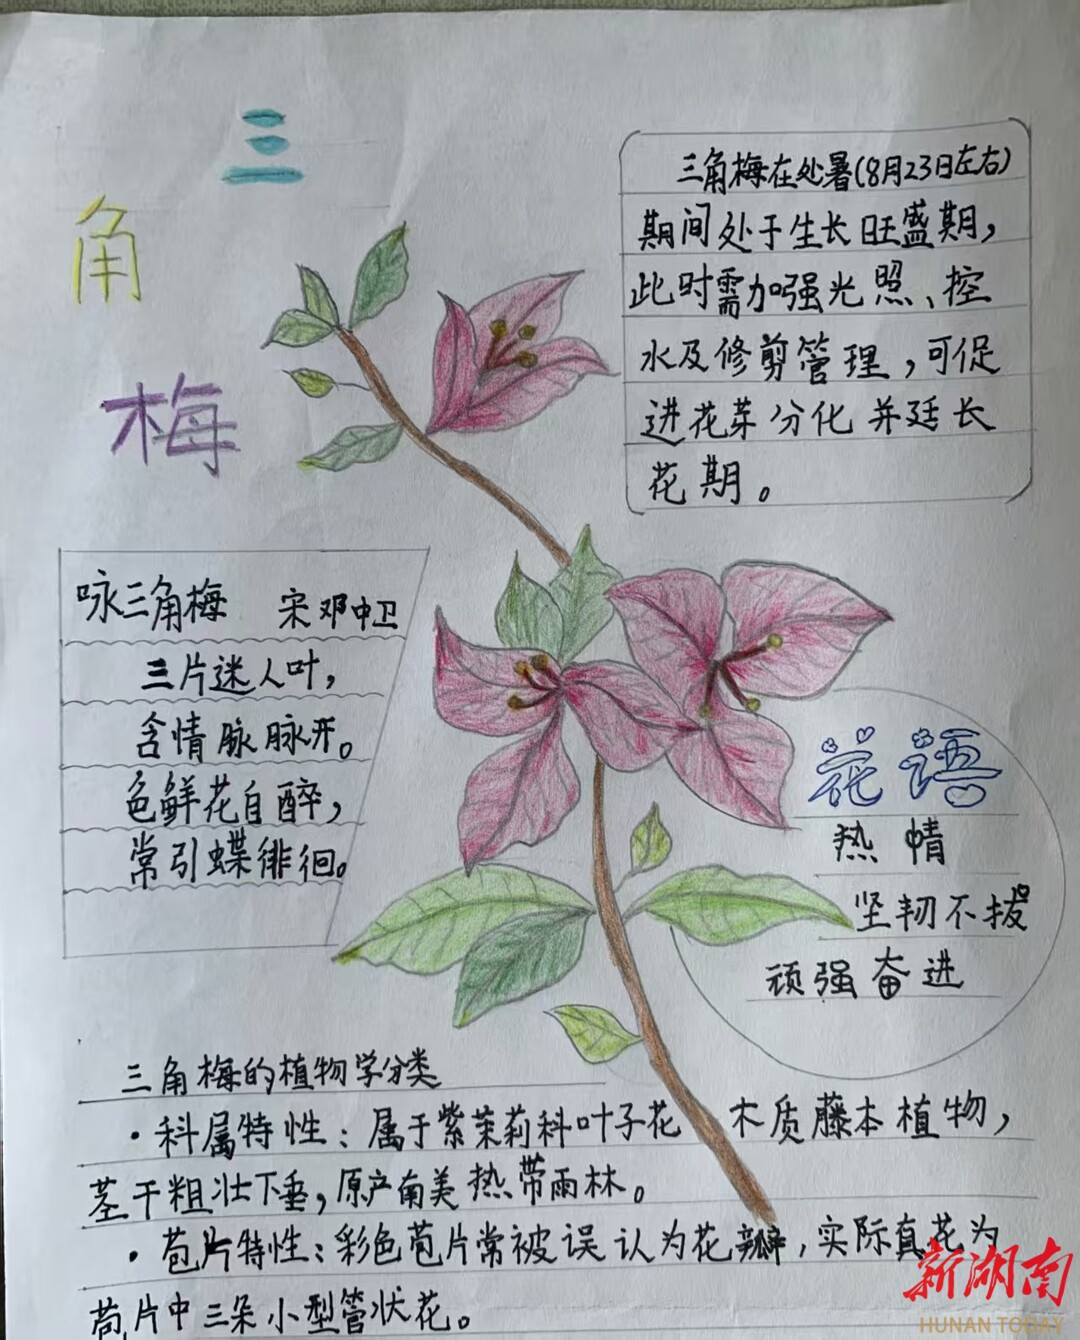 三
角
梅
三角梅在处暑(8月23日左右)
期间处于生长旺盛期，
此时需加强光照、控
水及修剪管理，可促
进花芽分化并延长
花期。
咏三角梅 宋邓中卫
三片迷人叶，
含情脉脉开。
色鲜花自醉，
常引蝶徘徊。
花语
热情
坚韧不拔
顽强奋进
三角梅的植物学分类
·科属特性：属于紫茉莉科叶子花 木质藤本植物，
茎干粗壮下垂，原产南美热带雨林。
·苞片特性：彩色苞片常被误认为花瓣，实际真花为
苞片中三朵小型管状花。
新湖南
HUNAN TODAY